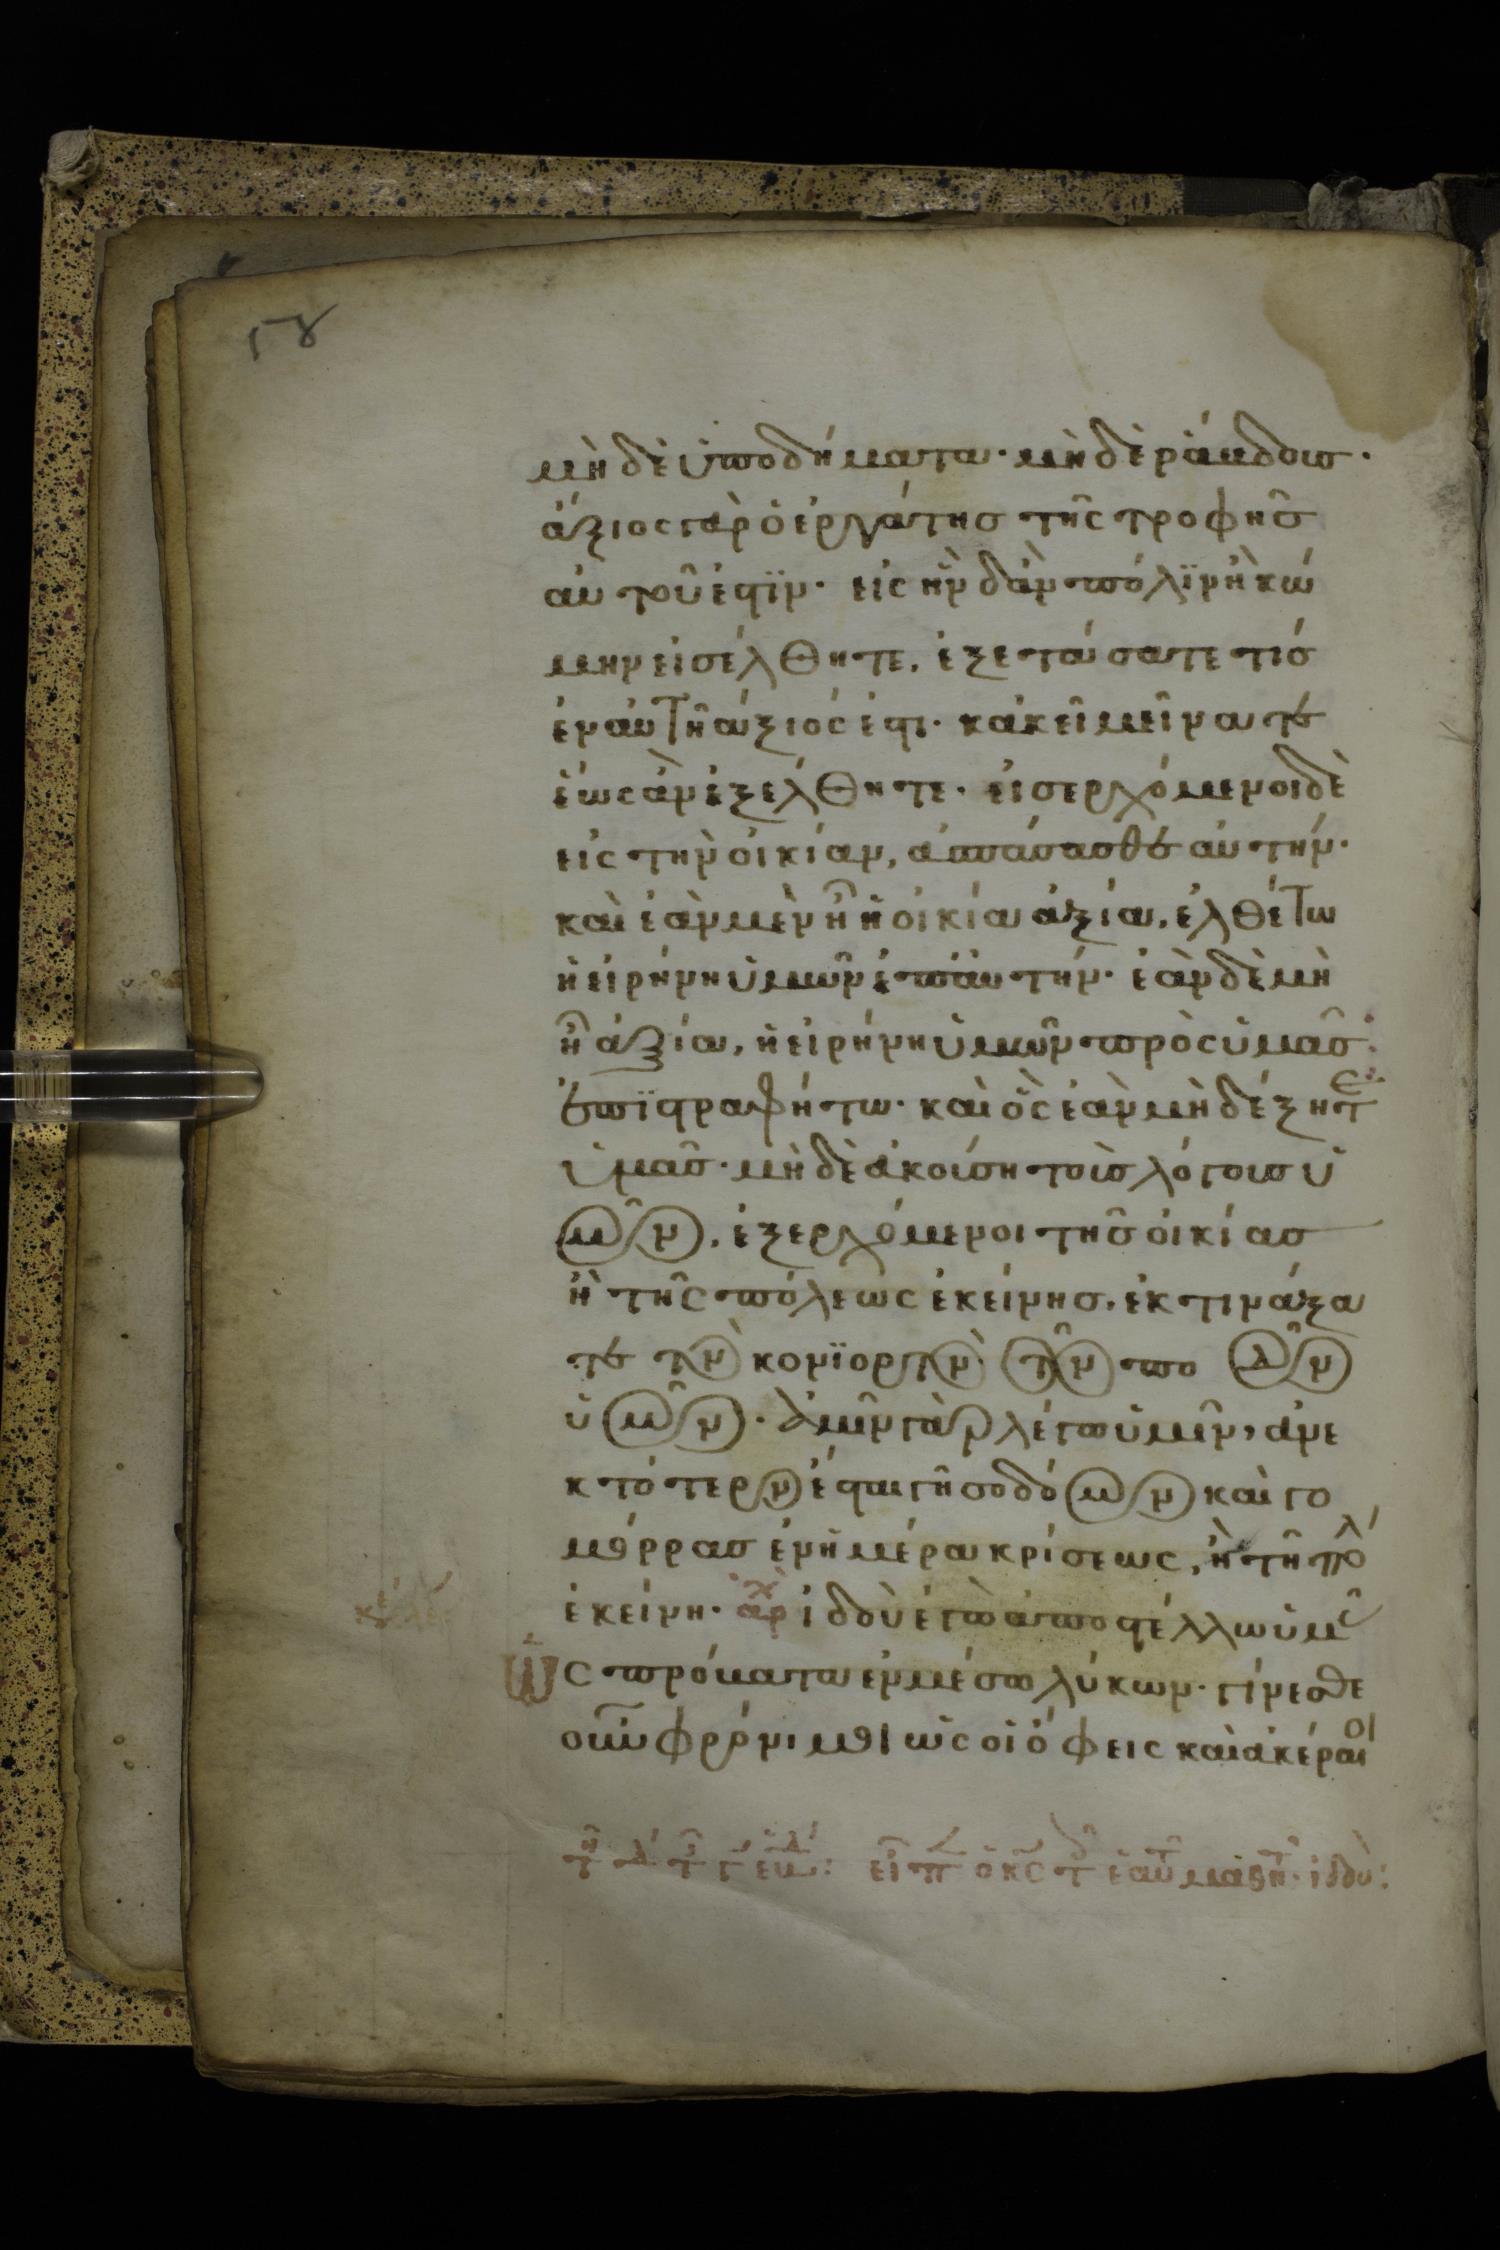 μηδὲ ὑποδήματα· μηδὲ ράβδους·
ἄξιος γὰρ ὁ ἐργάτης τῆς τροφῆς
αὐτοῦ ἐστϊν· εἰς ἣν δἂν πόλϊν ἢ κώ
μην εἰσέλθητε, ἐξετάσατε τίς
ἐν αὐτῆ ἄξιός ἐστι· κἀκεῖ μεῖνατε
ἕως ἂν ἐξέλθητε· εἰσερχόμενοι δὲ
εἰς τὴν οἰκίαν, ἀσπάσασθε αὐτήν·
καὶ ἐὰν μὲν ἦ ἡ οἰκία ἀξία, ἐλθέτω
ἡ εἰρήνη ὑμῶν ἐπ' αὐτήν· ἐὰν δὲ μὴ
ἦ ἀξία, ἡ εἰρήνη ὑμῶν πρὸς ὑμᾶς
ἐπϊστραφήτω· καὶ ὃς ἐὰν μὴ δέξητε
ὑμᾶς· μηδὲ ἀκούση τοὺς λόγους ὑ
μῶν, ἐξερχόμενοι τῆς οἰκίας
ἢ τῆς πόλεως ἐκείνης, ἐκτινάξα
τε τὸν κονϊορτὸν τῶν ποδῶν
ὑμῶν· ἀμὴν γὰρ λέγω ὑμῖν, ἀνε
κτότερον ἔσται γῆ σοδόμων καὶ γο
μόρρας ἐν ἡμέρα κρίσεως, ἢ τῆ πόλ
ἐκείνη· ἀρχ ἰδοὺ ἐγὼ ἀποστέλλω ὑμᾶς
ὡς πρόβατα ἐν μέσω λύκων· γίνεσθε
οὖν φρόνιμοι ὡς οἱ ὄφεις καὶ ἀκέραιοι
εἶπ ὁ κς τ ἑαυτ μαθητ· ἰδοὺ: